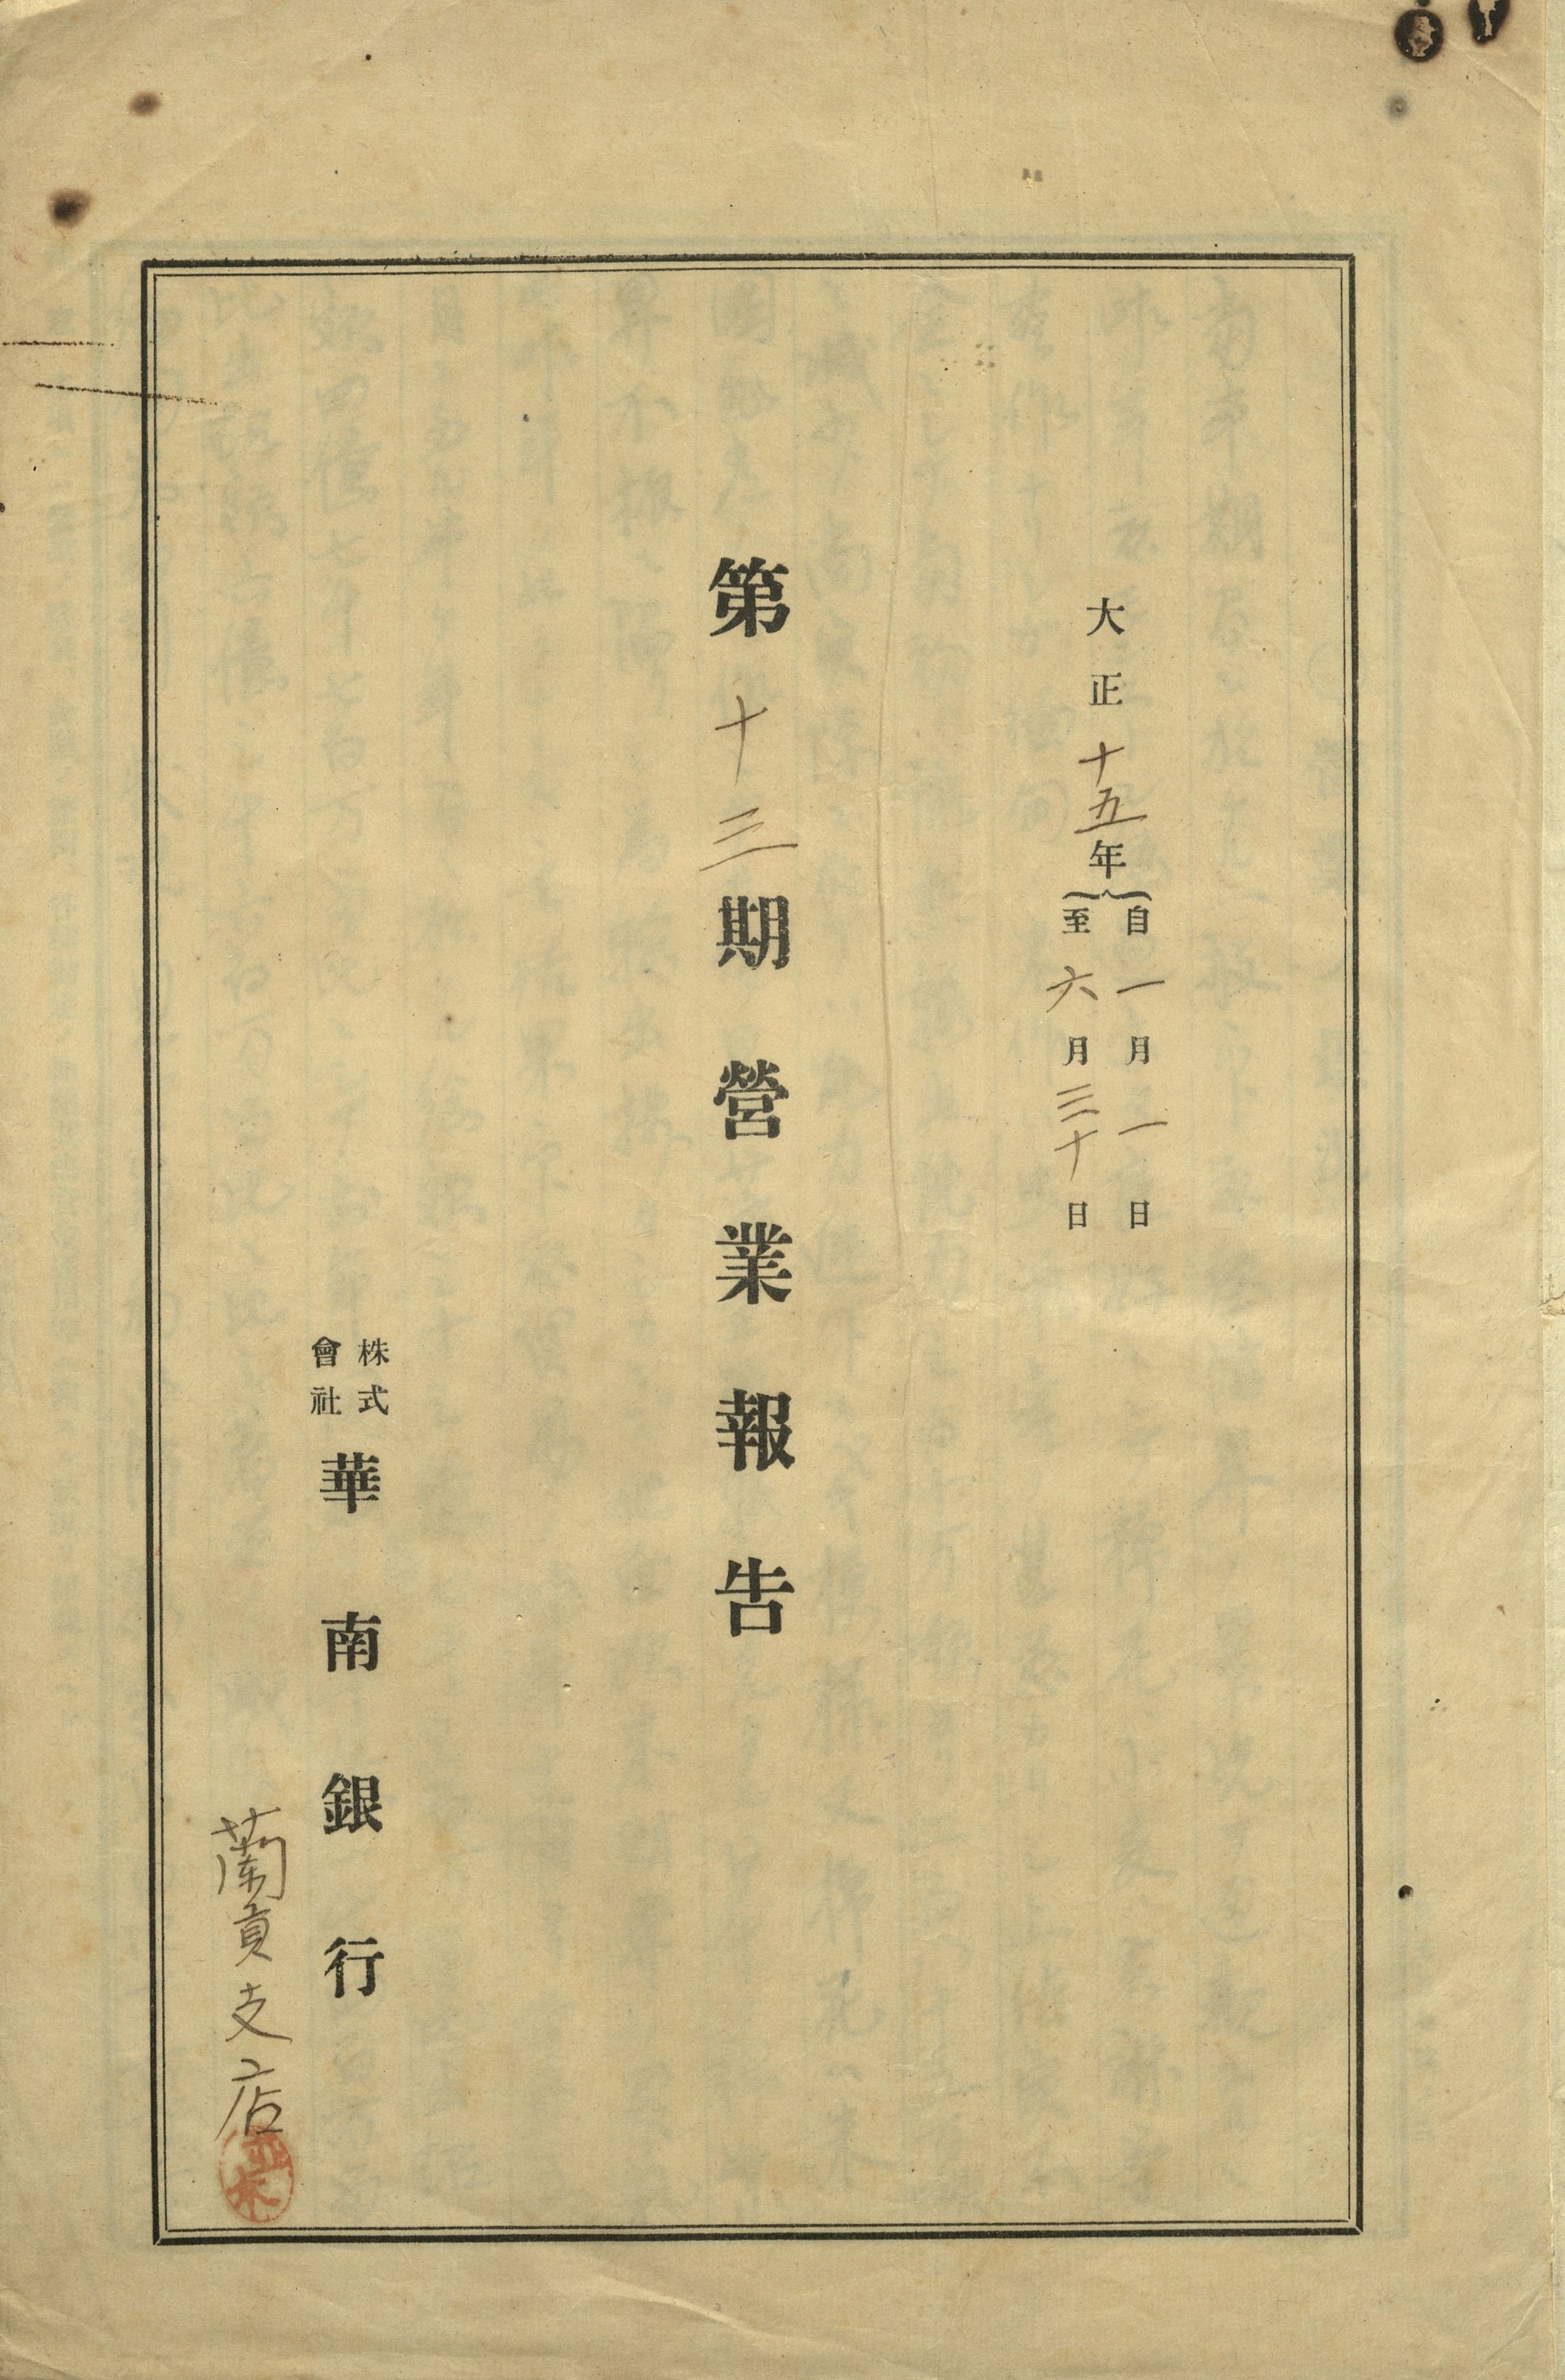 大正十五年
自一月一日
至六月三十日
第十三期營業報告
株式
會社
華南銀行
蘭貢支店